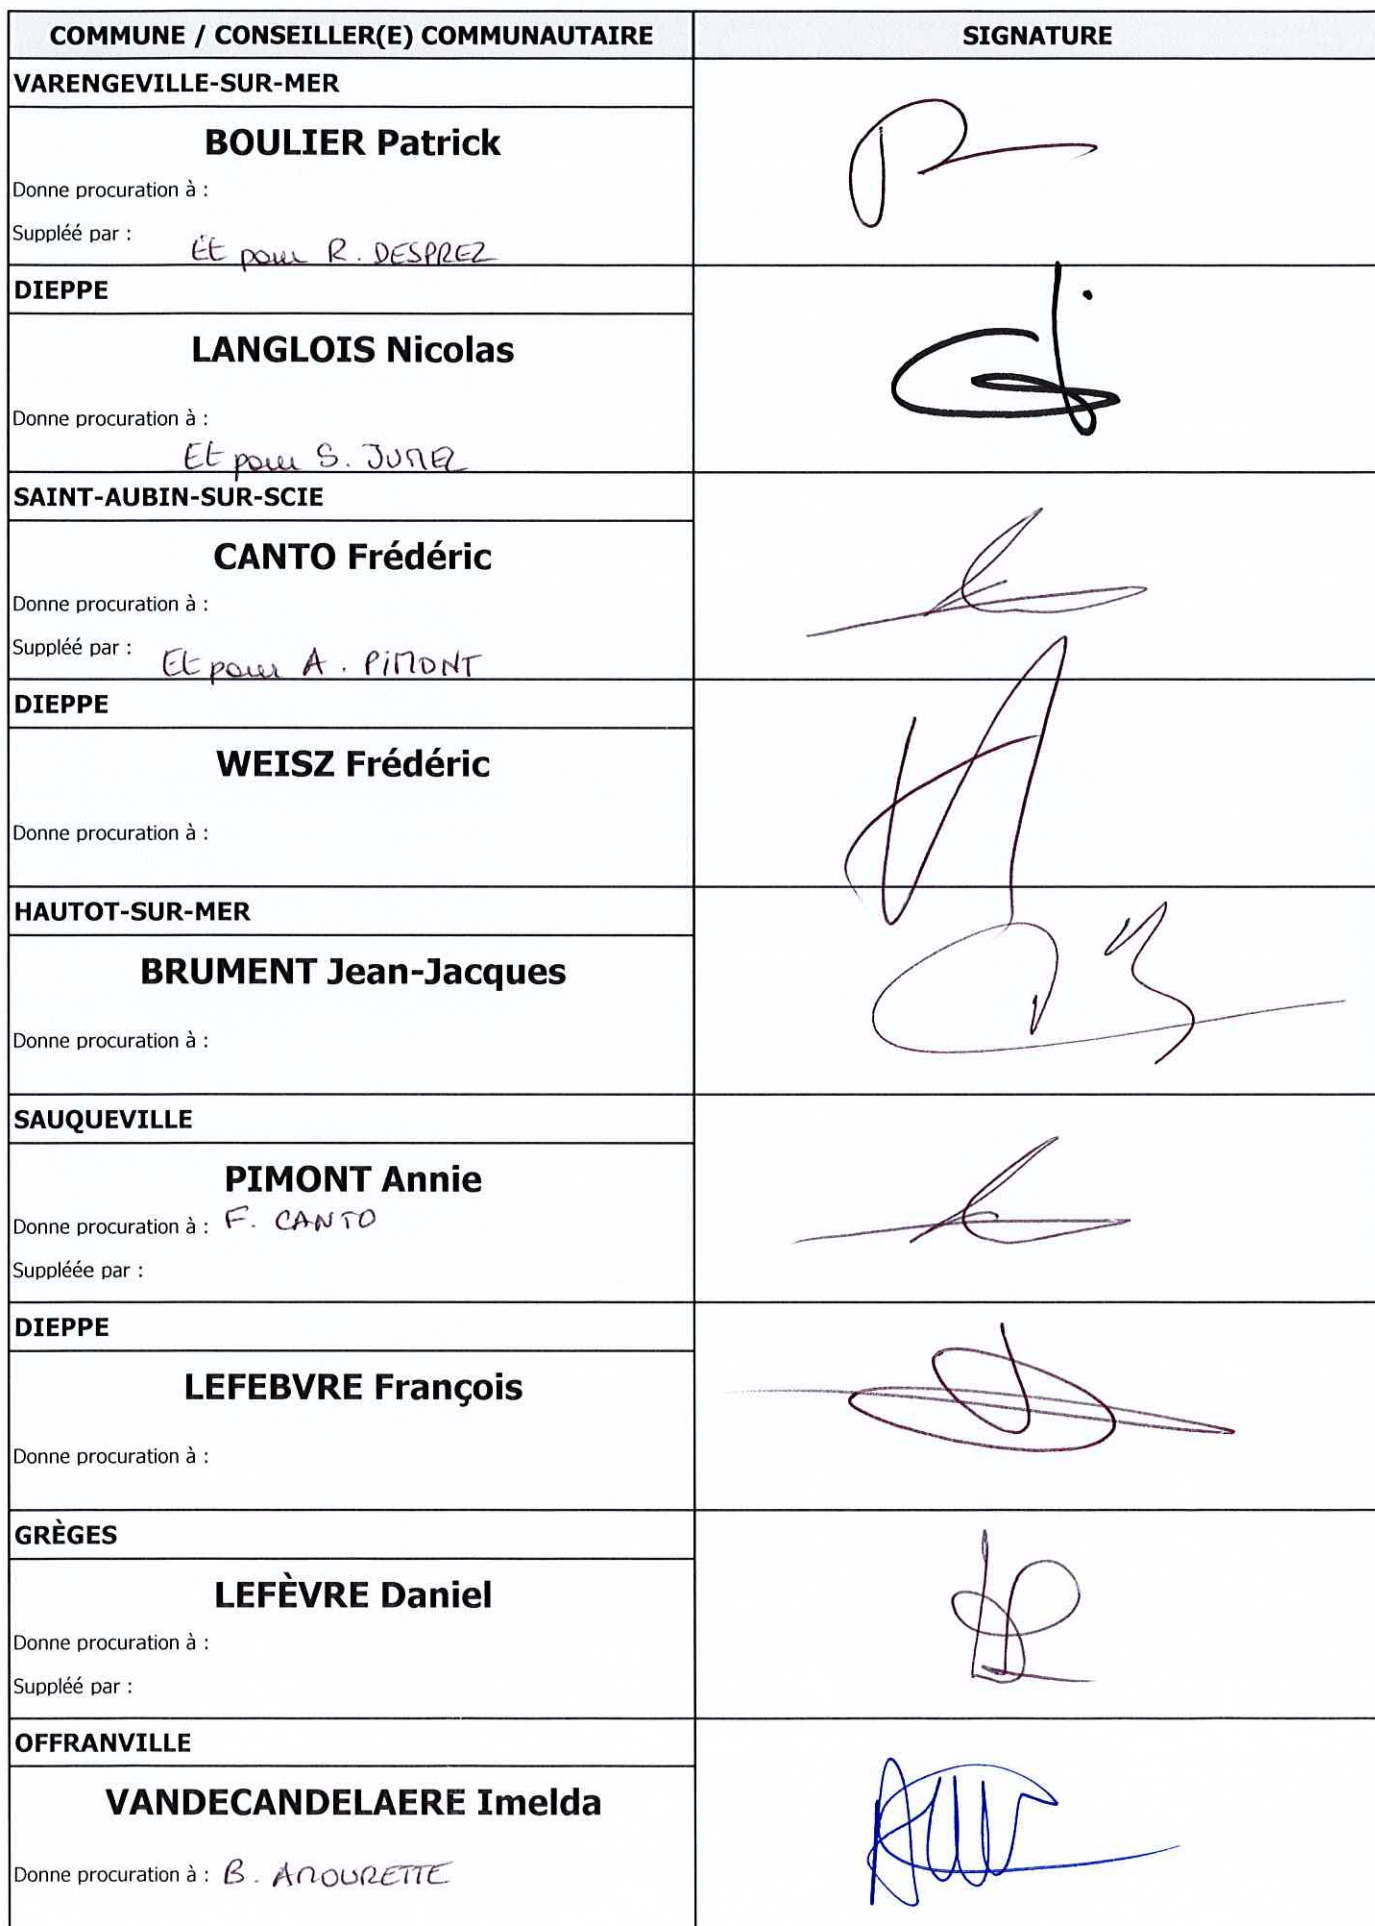 COMMUNE / CONSEILLER(E) COMMUNAUTAIRE
SIGNATURE
VARENGEVILLE-SUR-MER
BOULIER Patrick
Donne procuration à :
Suppléé par :
Et pour R. DESPREZ
DIEPPE
LANGLOIS Nicolas
Donne procuration à :
Et pour S. JUMEL
SAINT-AUBIN-SUR-SCIE
CANTO Frédéric
Donne procuration à :
Suppléé par :
Et pour A. PIMONT
DIEPPE
WEISZ Frédéric
Donne procuration à :
HAUTOT-SUR-MER
BRUMENT Jean-Jacques
Donne procuration à :
SAUQUEVILLE
PIMONT Annie
Donne procuration à : F. CANTO
Suppléée par :
DIEPPE
LEFEBVRE François
Donne procuration à :
GRÈGES
LEFÈVRE Daniel
Donne procuration à :
Suppléé par :
OFFRANVILLE
VANDECANDELAERE Imelda
Donne procuration à : B. AMOURETTE